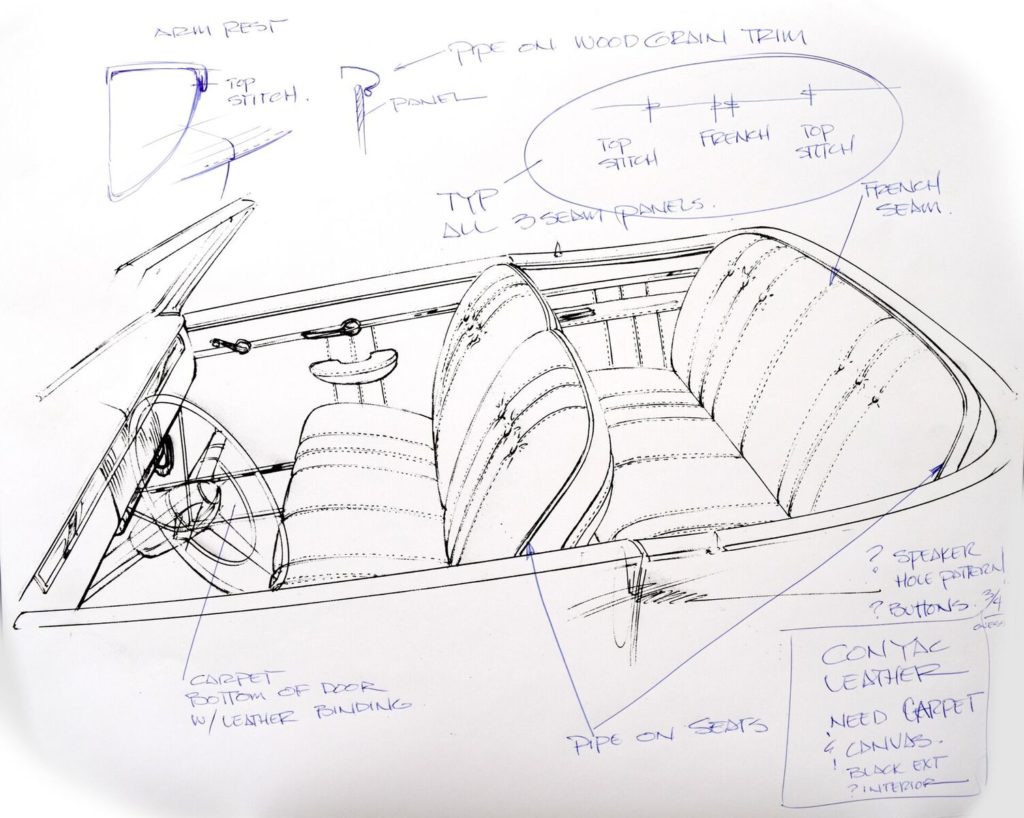 ARM REST
TOP
STITCH.
PIPE ON WOODGRAIN TRIM
PANEL
TOP
STITCH
FRENCH
TOP
STITCH
TYP
ALL 3 SEAM PANELS.
FRENCH
SEAM.
CARPET
BOTTOM OF DOOR
W/ LEATHER BINDING
PIPE ON SEATS
? SPEAKER
HOLE PATTERN
? BUTTONS. 3/4
CONYAC
LEATHER
NEED CARPET
& CANVAS.
! BLACK EXT
? INTERIOR